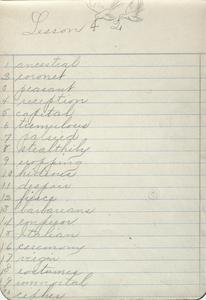 Lesson 42
1 ancestral
2 coronet
3 peasant
4 reception
5 capital
6 tremulous
7 palsied
8 stealthily
9 sopping
10 hideous
11 despair
12 fierce
13 barbarians
14 emperor
15 Italian
16 ceremony
17 reign
18 costumes
19 immortal
20 cipher